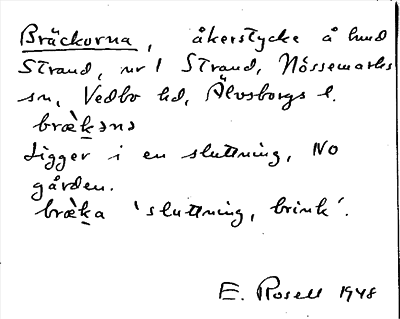 Bräckorna, åkerstycke å hmd
Strand, nr 1 Strand, Nössemarks
sn, Vedbo hd, Älvsborgs l.
bræ̀kənɔ
Ligger i en sluttning, NO
gården.
bræ̀ka 'sluttning, brink'.
E. Rosell 1948